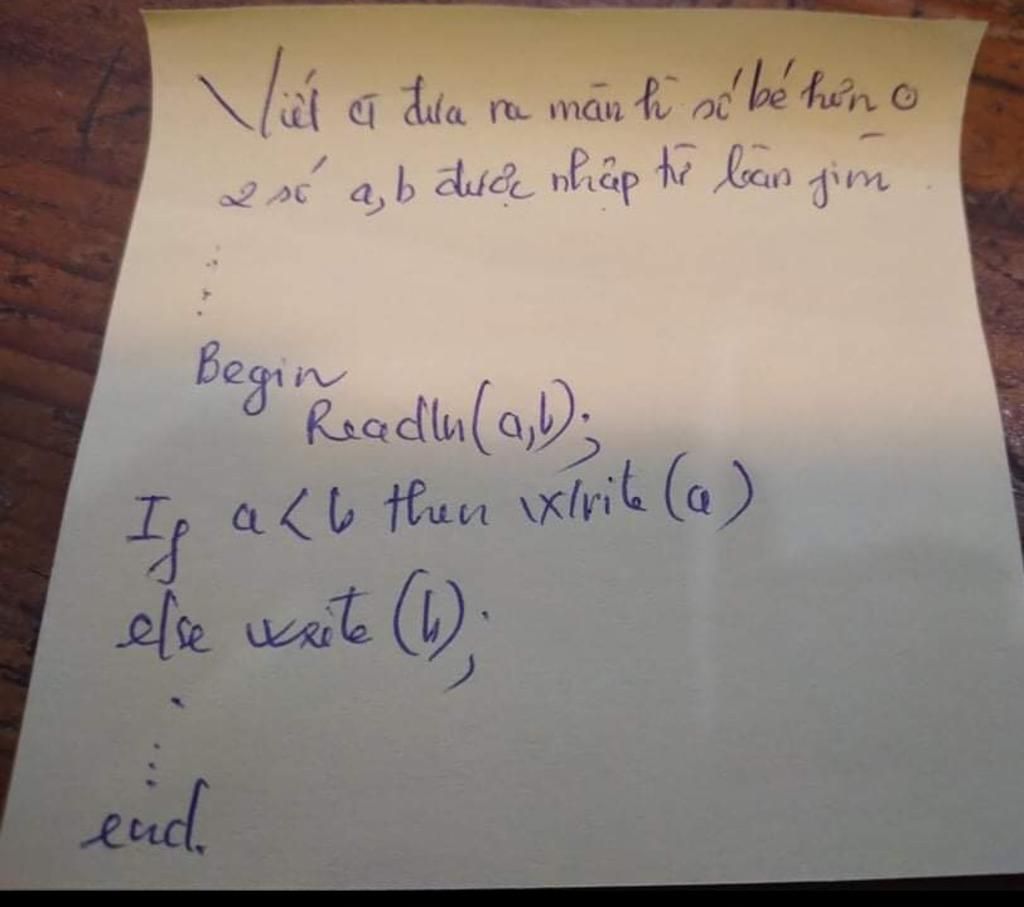 Viết ct đưa ra màn h số bé hơn
2 số a,b được nhập từ bàn
Begin
Readln(a,b);
If a<b then Write(a)
else write(b);
end.